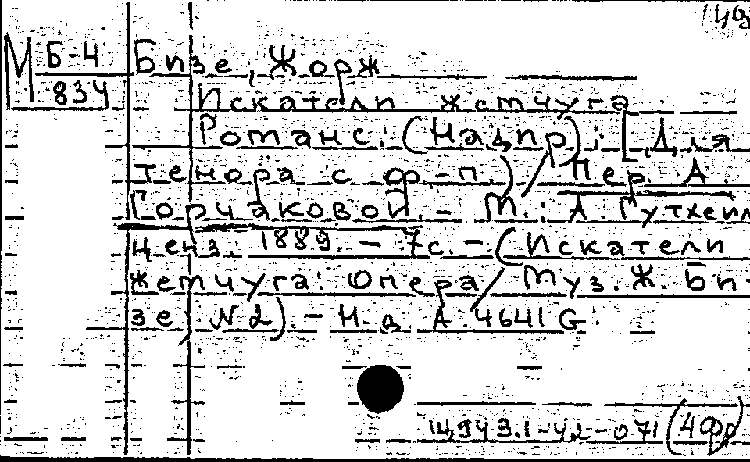 М Б-4
834
Бизе, Жорж
Искатели жемчуга
Романс: (Надир): [Для
тенора с ф-п.) / Пер. А.
Горчаковой. - М.: А. Гутхейл
ценз. 1889. - 7с. - (Искатели
жемчуга: Опера / Муз. Ж. Би-
зе; N2). - Н.д. А. 4641 G.